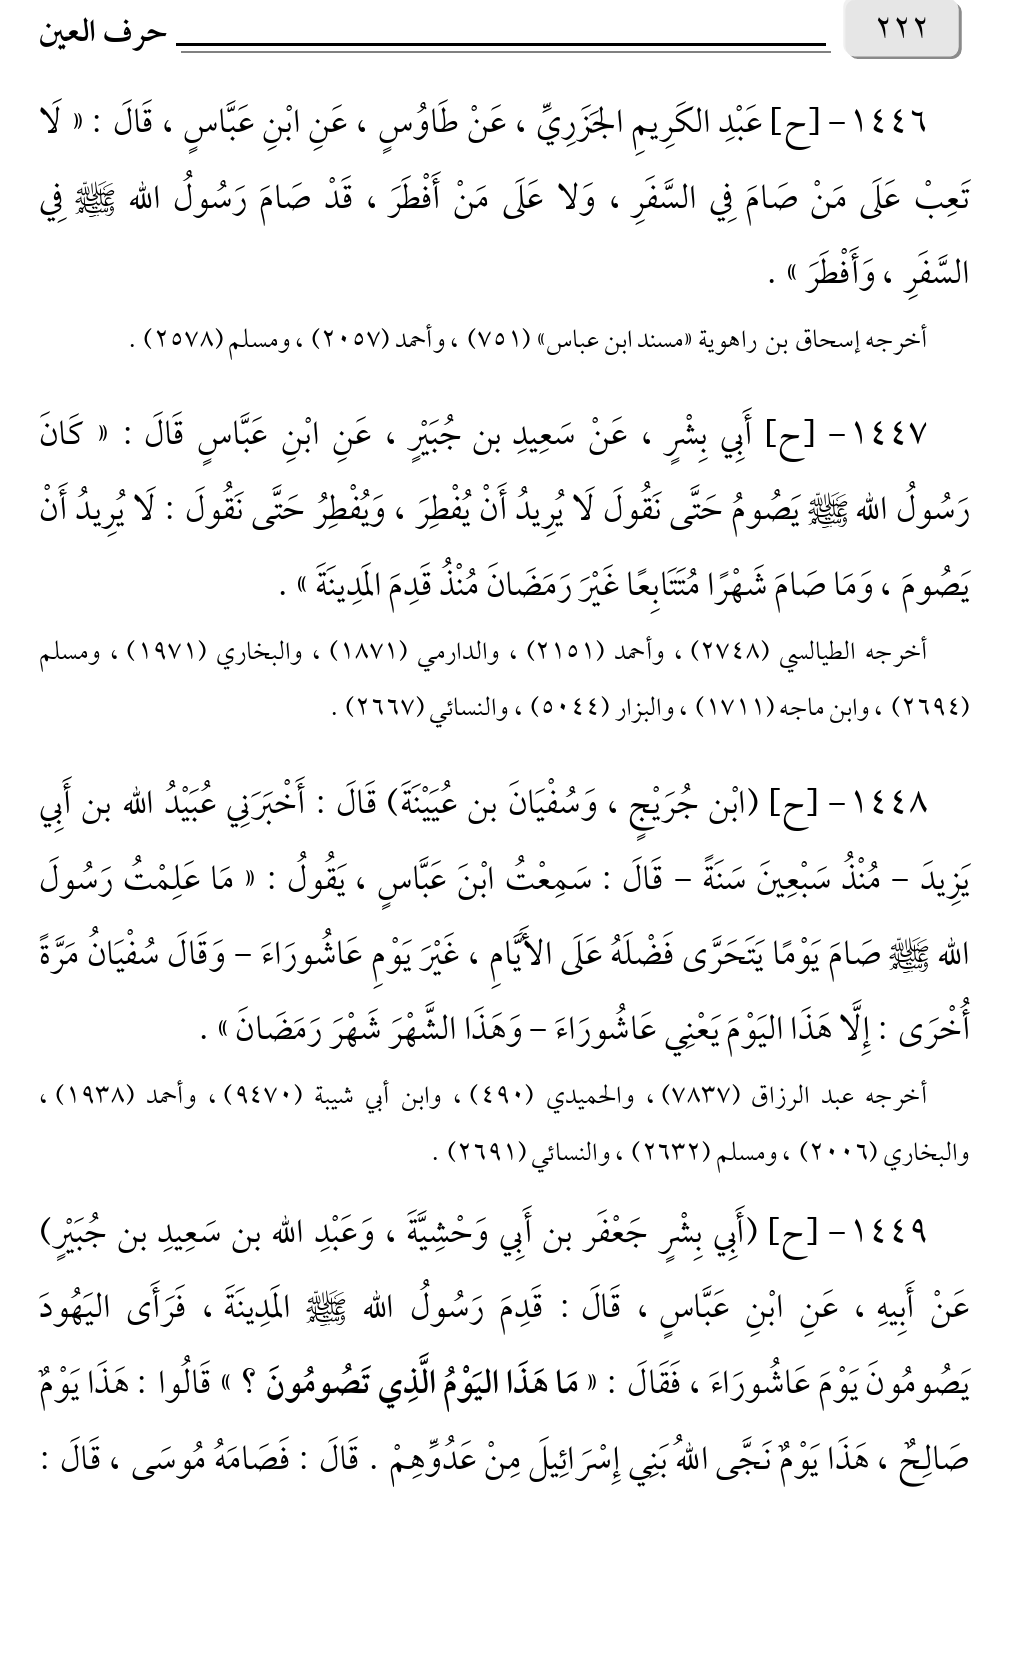 ٢٢٢ حرف العين
١٤٤٦- [ح] عَبْدِ الكَرِيمِ الجَزَرِيِّ ، عَنْ طَاوُسٍ ، عَنِ ابْنِ عَبَّاسٍ ، قَالَ : « لَا
تَعِبْ عَلَى مَنْ صَامَ فِي السَّفَرِ ، وَلا عَلَى مَنْ أَفْطَرَ ، قَدْ صَامَ رَسُولُ الله ﷺ فِي
السَّفَرِ ، وَأَفْطَرَ » .
أخرجه إسحاق بن راهوية «مسند ابن عباس» (٧٥١) ، وأحمد (٢٠٥٧) ، ومسلم (٢٥٧٨) .
١٤٤٧- [ح] أَبِي بِشْرٍ ، عَنْ سَعِيدِ بن جُبَيْرٍ ، عَنِ ابْنِ عَبَّاسٍ قَالَ : « كَانَ
رَسُولُ الله ﷺ يَصُومُ حَتَّى نَقُولَ لَا يُرِيدُ أَنْ يُفْطِرَ ، وَيُفْطِرُ حَتَّى نَقُولَ : لَا يُرِيدُ أَنْ
يَصُومَ ، وَمَا صَامَ شَهْرًا مُتَتَابِعًا غَيْرَ رَمَضَانَ مُنْذُ قَدِمَ المَدِينَةَ » .
أخرجه الطيالسي (٢٧٤٨) ، وأحمد (٢١٥١) ، والدارمي (١٨٧١) ، والبخاري (١٩٧١) ، ومسلم
(٢٦٩٤) ، وابن ماجه (١٧١١) ، والبزار (٥٠٤٤) ، والنسائي (٢٦٦٧) .
١٤٤٨- [ح] (ابْن جُرَيْجٍ ، وَسُفْيَانَ بن عُيَيْنَةَ) قَالَ : أَخْبَرَنِي عُبَيْدُ الله بن أَبِي
يَزِيدَ – مُنْذُ سَبْعِينَ سَنَةً – قَالَ : سَمِعْتُ ابْنَ عَبَّاسٍ ، يَقُولُ : « مَا عَلِمْتُ رَسُولَ
الله ﷺ صَامَ يَوْمًا يَتَحَرَّى فَضْلَهُ عَلَى الأَيَّامِ ، غَيْرَ يَوْمِ عَاشُورَاءَ – وَقَالَ سُفْيَانُ مَرَّةً
أُخْرَى : إِلَّا هَذَا اليَوْمَ يَعْنِي عَاشُورَاءَ – وَهَذَا الشَّهْرَ شَهْرَ رَمَضَانَ » .
أخرجه عبد الرزاق (٧٨٣٧) ، والحميدي (٤٩٠) ، وابن أبي شيبة (٩٤٧٠) ، وأحمد (١٩٣٨) ،
والبخاري (٢٠٠٦) ، ومسلم (٢٦٣٢) ، والنسائي (٢٦٩١) .
١٤٤٩- [ح] (أَبِي بِشْرٍ جَعْفَر بن أَبِي وَحْشِيَّةَ ، وَعَبْدِ الله بن سَعِيدِ بن جُبَيْرٍ)
عَنْ أَبِيهِ ، عَنِ ابْنِ عَبَّاسٍ ، قَالَ : قَدِمَ رَسُولُ الله ﷺ المَدِينَةَ ، فَرَأَى اليَهُودَ
يَصُومُونَ يَوْمَ عَاشُورَاءَ ، فَقَالَ : « مَا هَذَا اليَوْمُ الَّذِي تَصُومُونَ ؟ » قَالُوا : هَذَا يَوْمٌ
صَالِحٌ ، هَذَا يَوْمٌ نَجَّى اللهُ بَنِي إِسْرَائِيلَ مِنْ عَدُوِّهِمْ . قَالَ : فَصَامَهُ مُوسَى ، قَالَ :